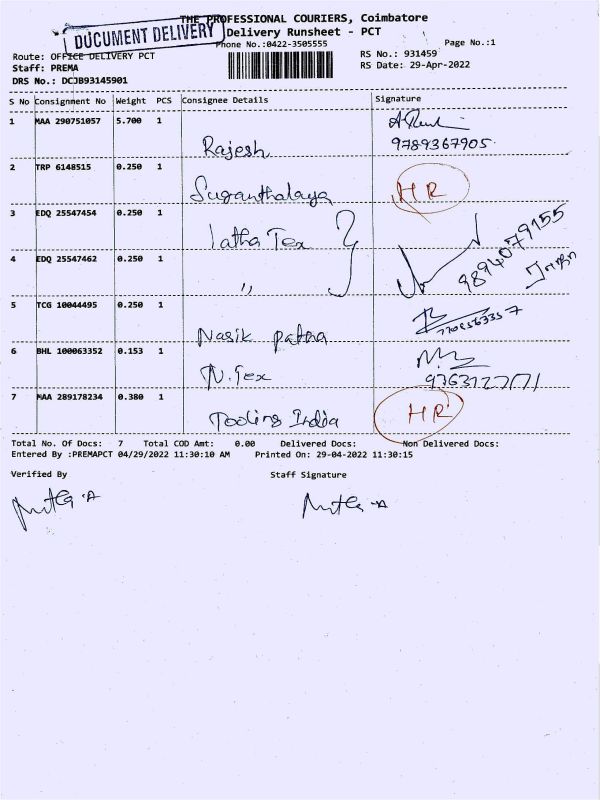 DOCUMENT DELIVERY
THE PROFESSIONAL COURIERS, Coimbatore
Delivery Runsheet - PCT
Phone No.:0422-3505555
Page No.:1
Route: OFFICE DELIVERY PCT
RS No.: 931459
Staff: PREMA
RS Date: 29-Apr-2022
DRS No.: DCJB93145901
S No Consignment No Weight PCS Consignee Details Signature
1 MAA 290751057 5.700 1
Rajesh 9789367905.
2 TRP 6148515 0.250 1
Suganthalaya HR
3 EDQ 25547454 0.250 1
latha Tex 9894079155
4 EDQ 25547462 0.250 1
"
5 TCG 10044495 0.250 1
Nasik patna
6 BHL 100063352 0.153 1
N. Tex
7 MAA 289178234 0.380 1
Tooling India HR
Total No. Of Docs: 7 Total COD Amt: 0.00 Delivered Docs: Non Delivered Docs:
Entered By :PREMAPCT 04/29/2022 11:30:10 AM Printed On: 29-04-2022 11:30:15
Verified By Staff Signature